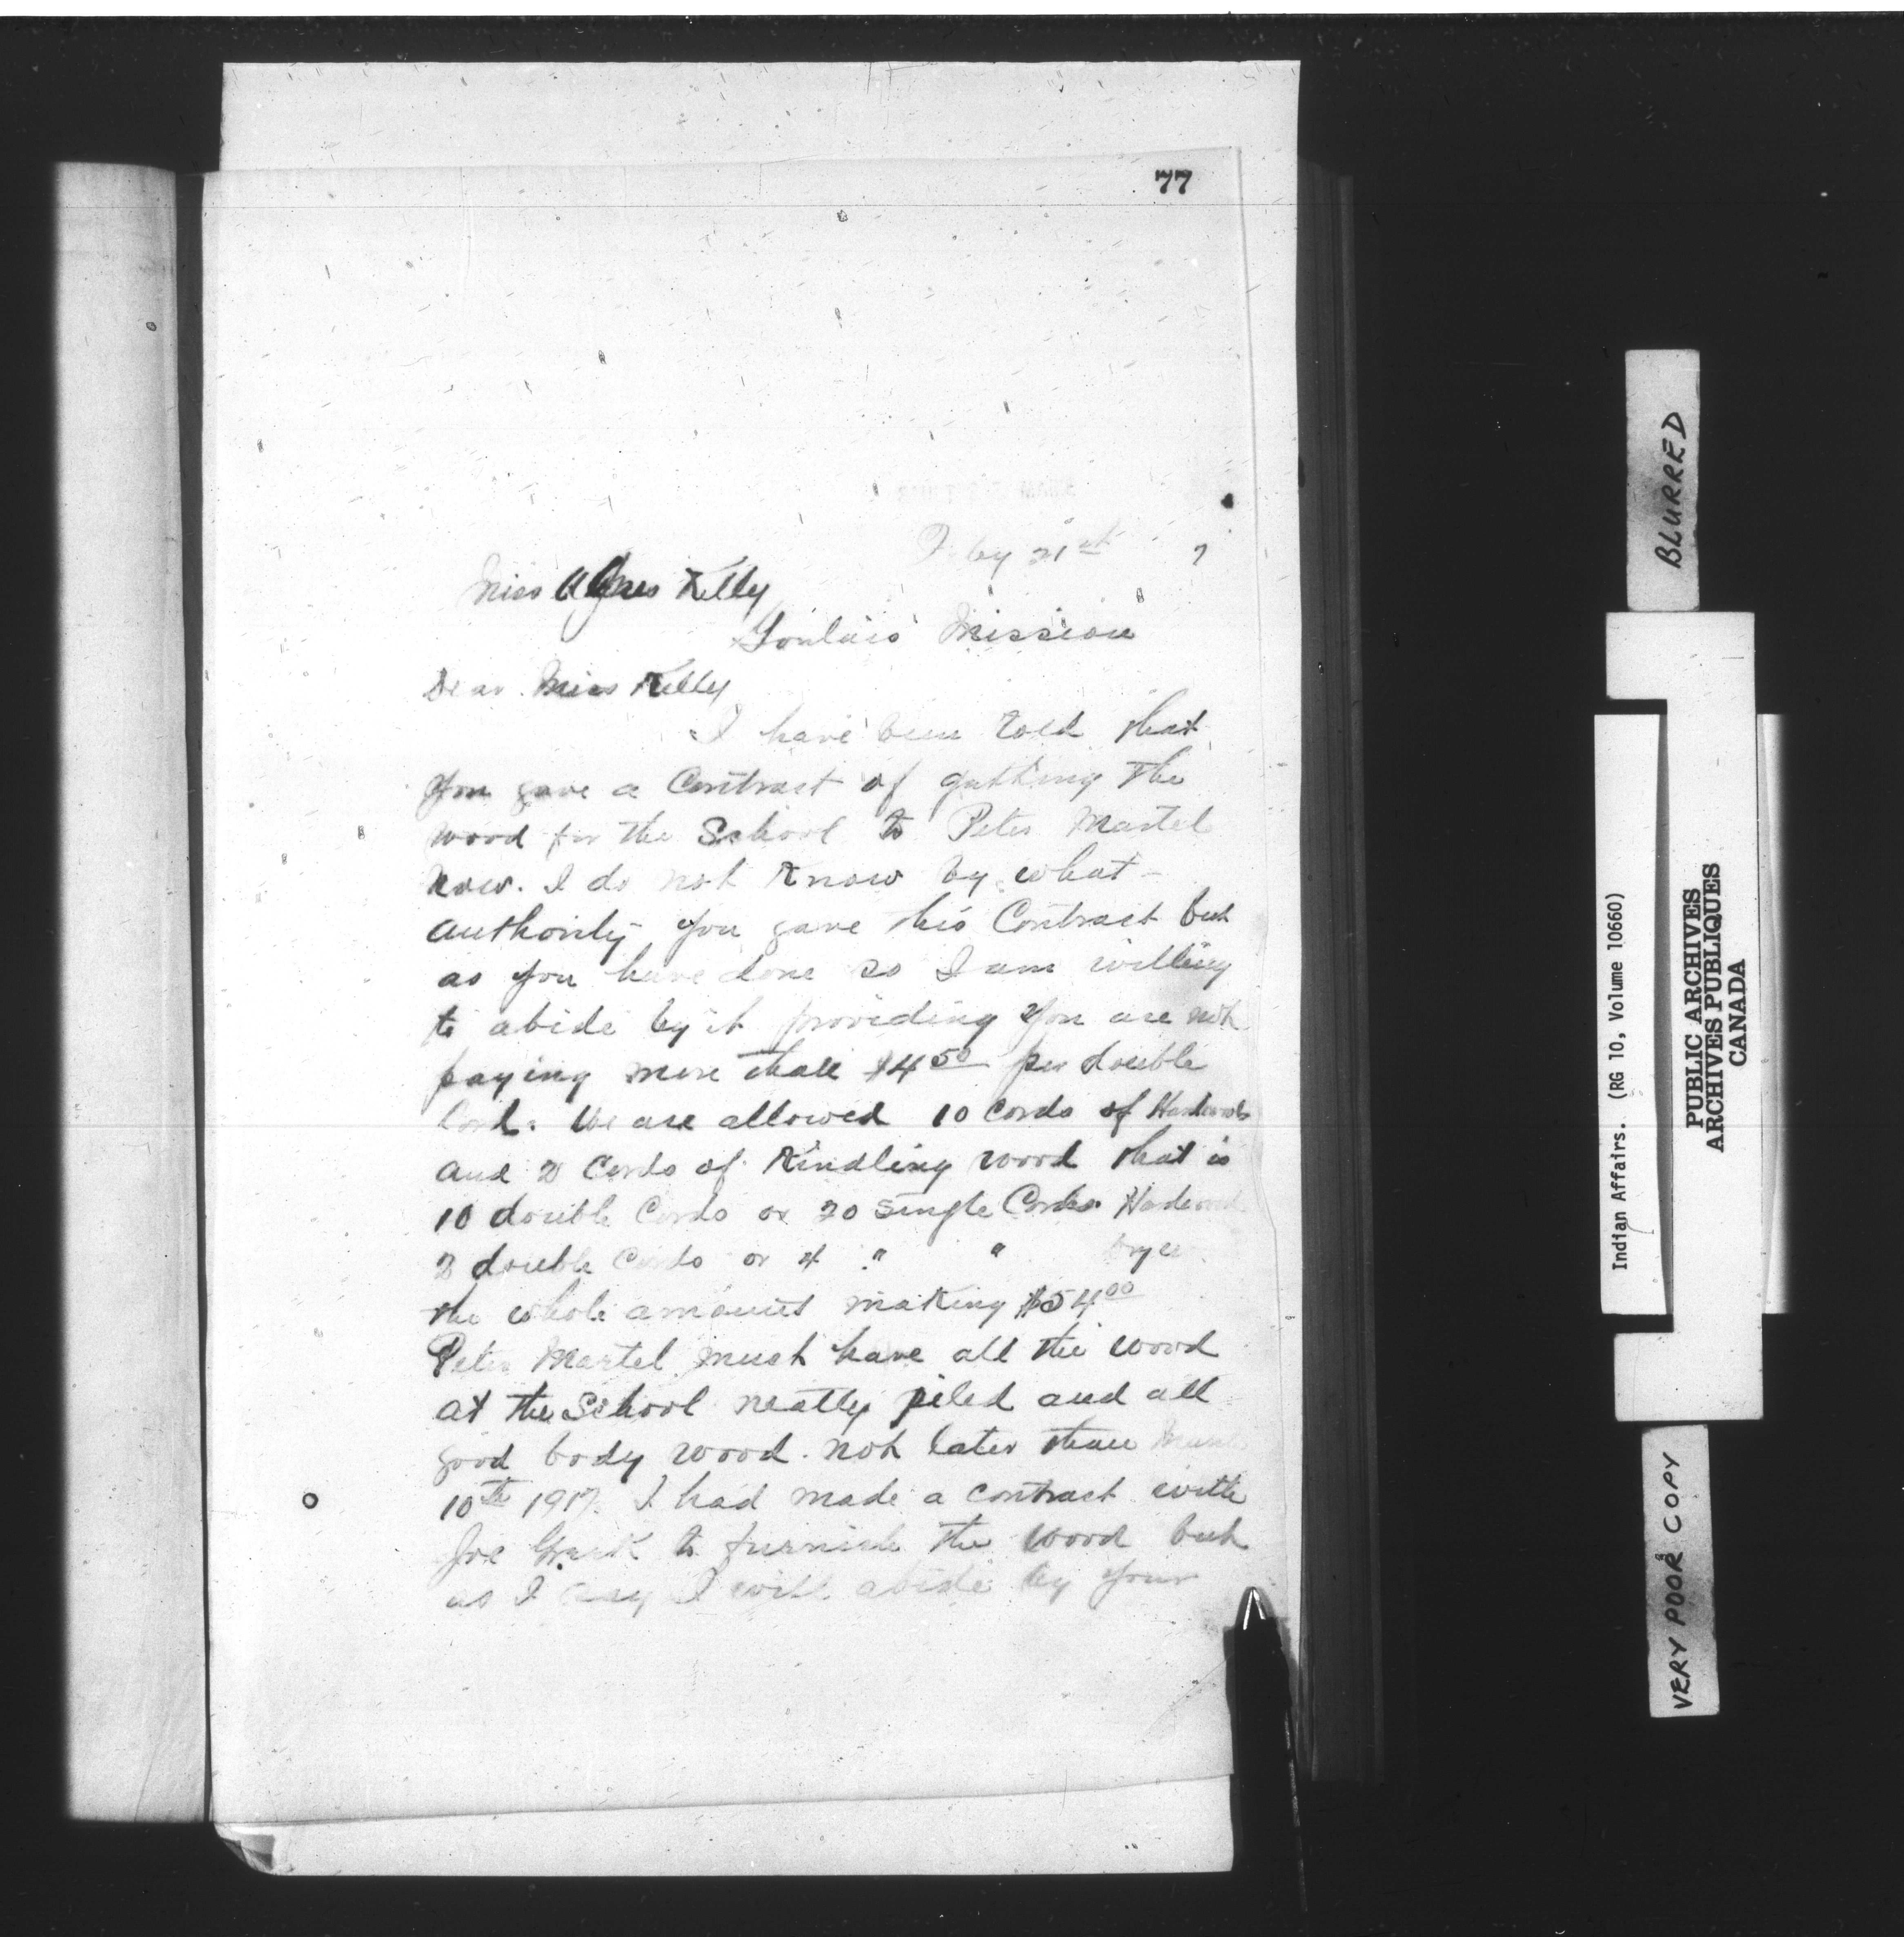 77
Feby 21st 7
Miss Agnes Kelly
Goulais Mission
Dear Miss Kelly
I have been told that
you gave a Contract of getting the
wood for the School to Peter Martel
now. I do not know by what
authority you gave this Contract but
as you have done so I am willing
to abide by it providing you are not
paying more than $4 50 per double
Cord. We are allowed 10 Cords of Hardwood
and 2 Cords of Kindling wood that is
10 double Cords or 20 single Cords Hardwood
2 double Cords or 4 " "
the whole amount making $54 00
Peter Martel must have all the wood
at the School neatly piled and all
good body wood. not later than
10th 1917. I had made a contract with
Joe to furnish the wood but
as I say I will abide by your
BLURRED
Indian Affairs. (RG 10, Volume 10660)
PUBLIC ARCHIVES
ARCHIVES PUBLIQUES
CANADA
VERY POOR COPY